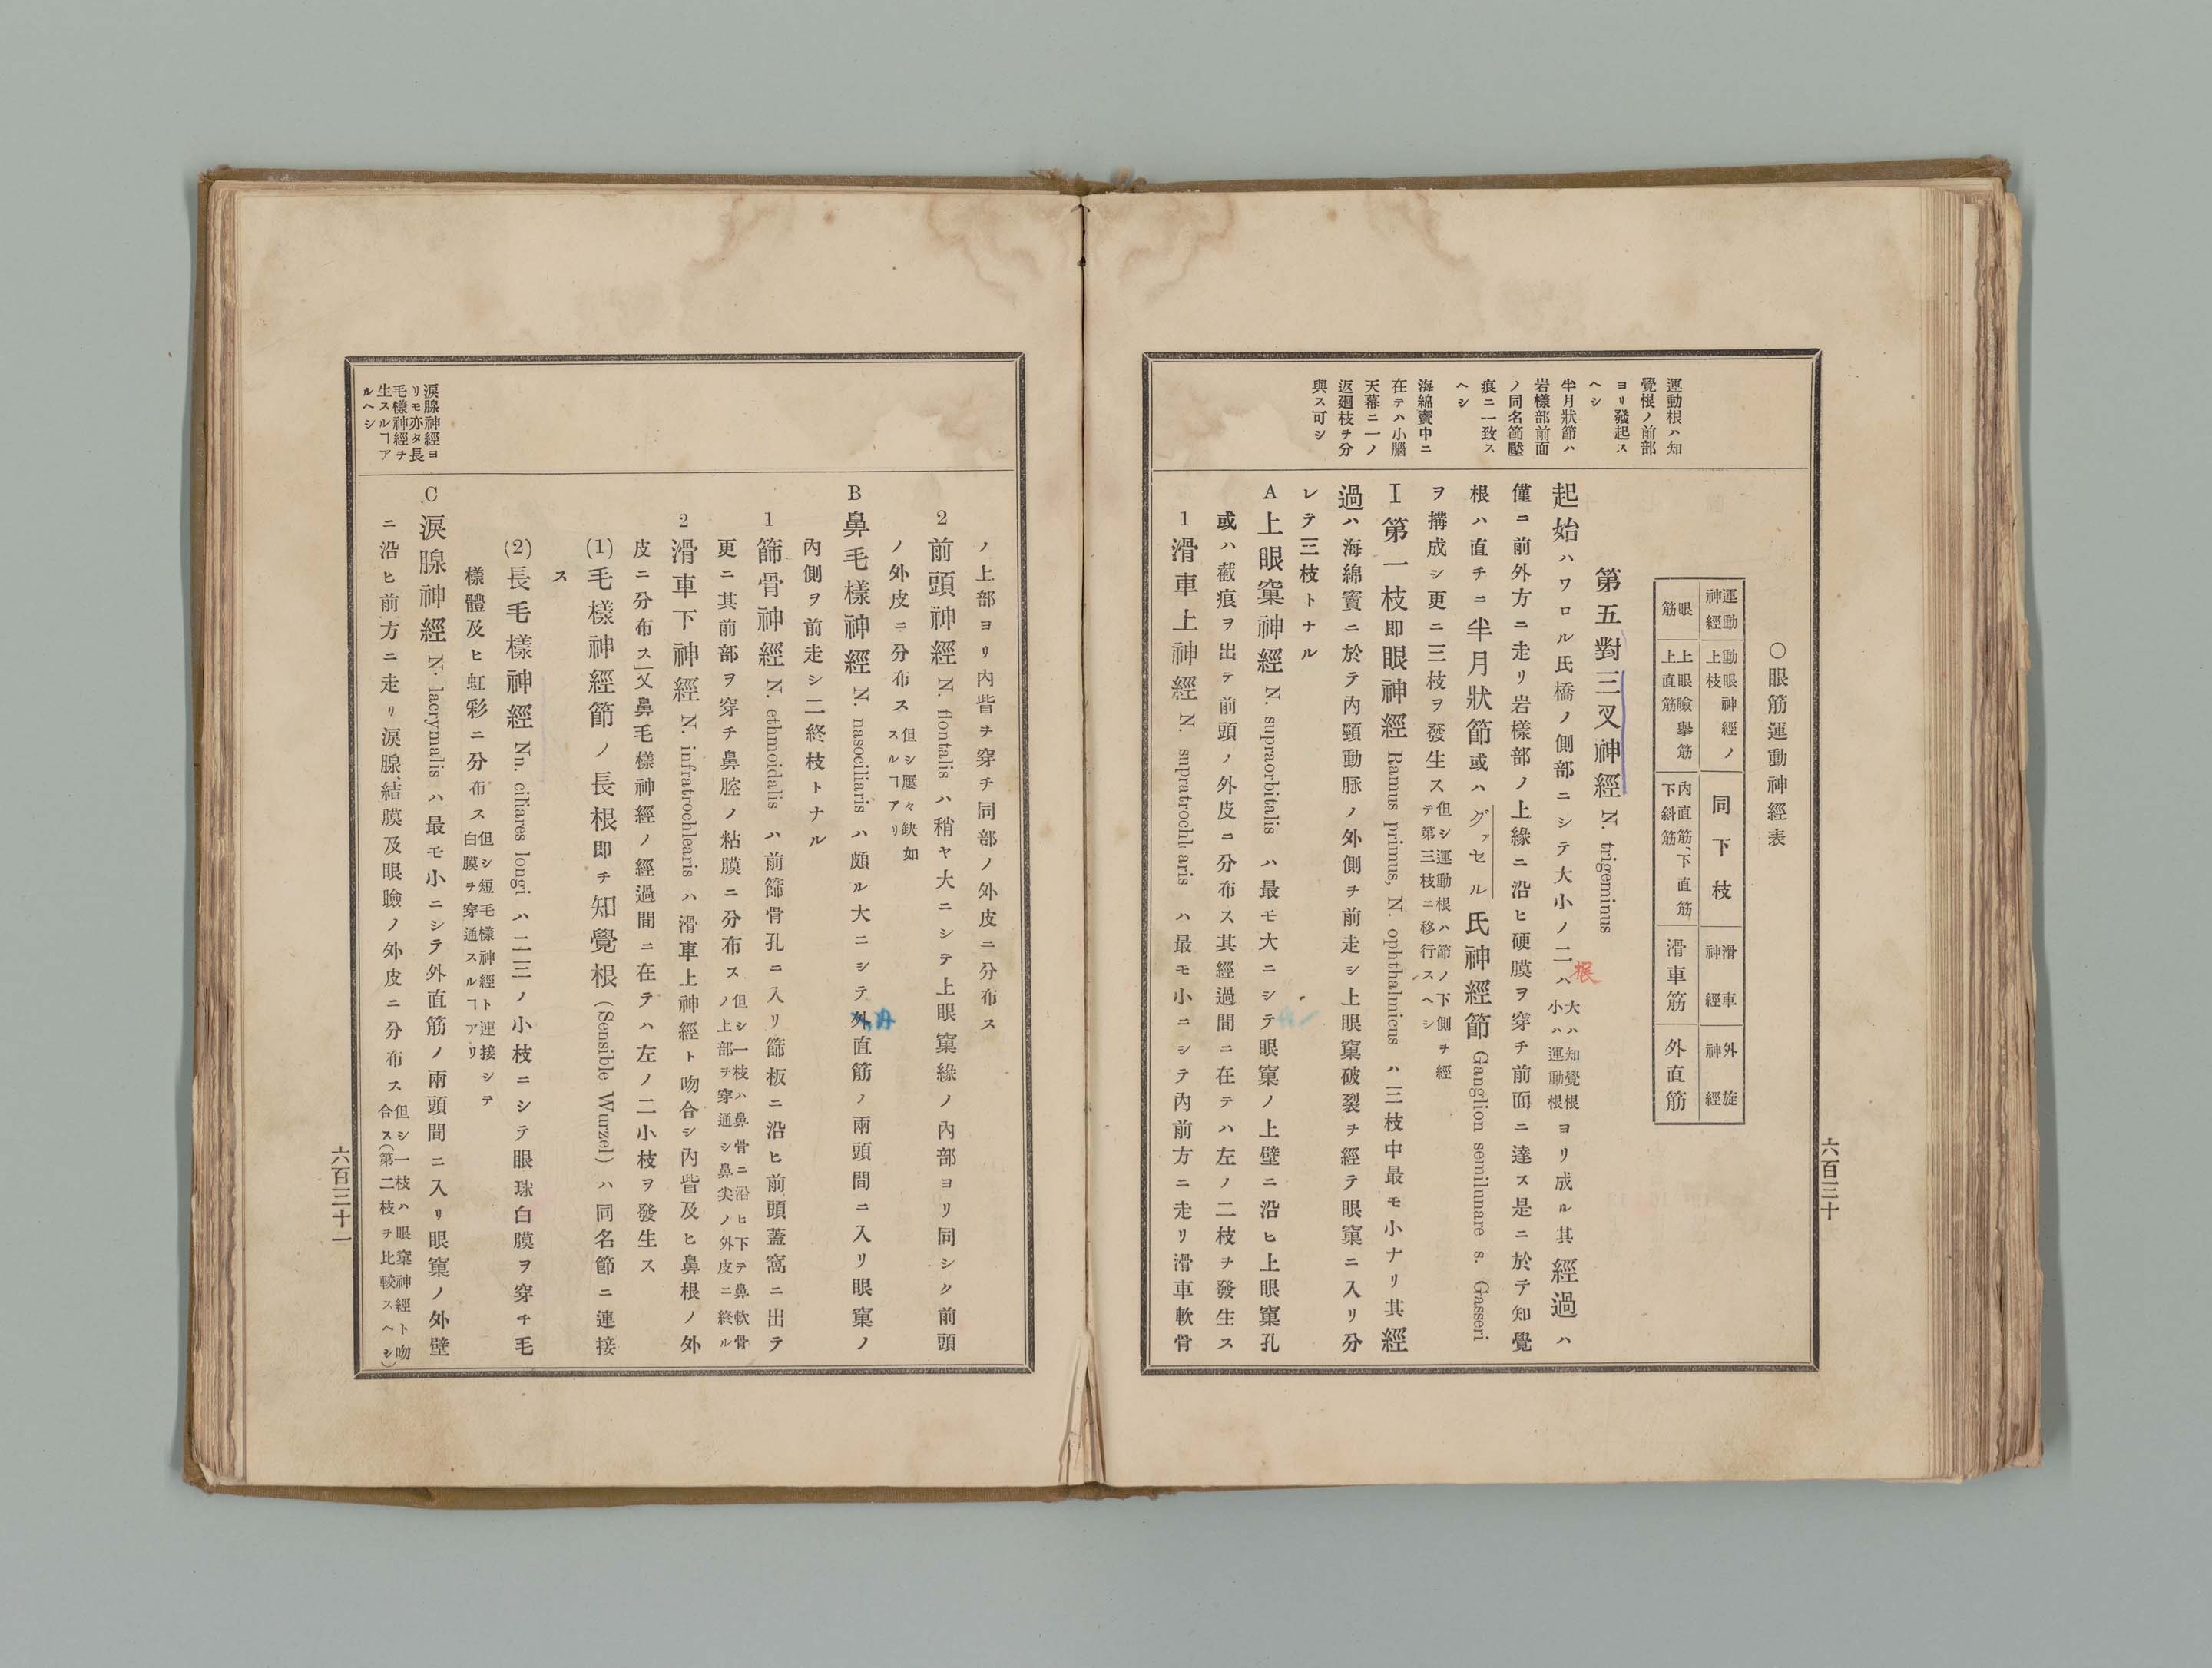 運動根ハ知
覺根ノ前部
ヨリ發起ス
ヘシ
半月狀節ハ
岩樣部前面
ノ同名節壓
痕ニ一致ス
ヘシ
海綿竇中ニ
在テハ小腦
天幕ニ一ノ
返廻枝チ分
與ス可シ
〇眼筋運動神經表
運動神經
動眼神經ノ上枝
同下枝
滑車神經
外旋神經
眼筋
上眼瞼擧筋
上直筋
內直筋、下直筋
下斜筋
滑車筋
外直筋
第五對三叉神經 N. trigeminus
起始ハワロル氏橋ノ側部ニシテ大小ノ二根ハ大ハ知覺根小ハ運動根ヨリ成ル其經過ハ
僅ニ前外方ニ走リ岩樣部ノ上緣ニ沿ヒ硬膜ヲ穿チ前面ニ達ス是ニ於テ知覺
根ハ直チニ半月狀節或ハグァセル氏神經節 Ganglion semilunare s. Gasseri
ヲ搆成シ更ニ三枝ヲ發生ス但シ運動根ハ節ノ下側チ經テ第三枝ニ移行スヘシ
I 第一枝即眼神經 Ramus primus, N. ophthalmicus ハ三枝中最モ小ナリ其經
過ハ海綿竇ニ於テ內頸動脉ノ外側チ前走シ上眼窠破裂チ經テ眼窠ニ入リ分
レテ三枝トナル
A 上眼窠神經 N. supraorbitalis ハ最モ大ニシテ眼窠ノ上壁ニ沿ヒ上眼窠孔
或ハ截痕ヲ出テ前頭ノ外皮ニ分布ス其經過間ニ在テハ左ノ二枝チ發生ス
1 滑車上神經 N. supratrochlaris ハ最モ小ニシテ內前方ニ走リ滑車軟骨
六百三十
ノ上部ヨリ內眥チ穿チ同部ノ外皮ニ分布ス
2 前頭神經 N. flontalis ハ稍ヤ大ニシテ上眼窠緣ノ內部ヨリ同シク前頭
ノ外皮ニ分布ス但シ屢々缺如スルヿアリ
B 鼻毛樣神經 N. nasociliaris ハ頗ル大ニシテ外內直筋ノ兩頭間ニ入リ眼窠ノ
內側ヲ前走シ二終枝トナル
1 篩骨神經 N. ethmoidalis ハ前篩骨孔ニ入リ篩板ニ沿ヒ前頭蓋窩ニ出テ
更ニ其前部ヲ穿チ鼻腔ノ粘膜ニ分布ス但シ一枝ハ鼻骨ニ沿ヒ下テ鼻軟骨ノ上部ヲ穿通シ鼻尖ノ外皮ニ終ル
2 滑車下神經 N. infratrochlearis ハ滑車上神經ト吻合シ內眥及ヒ鼻根ノ外
皮ニ分布ス」又鼻毛樣神經ノ經過間ニ在テハ左ノ二小枝ヲ發生ス
(1) 毛樣神經節ノ長根即チ知覺根 (Sensible Wurzel) ハ同名節ニ連接
ス
(2) 長毛樣神經 Nn. ciliares longi ハ二三ノ小枝ニシテ眼球白膜ヲ穿チ毛
樣體及ヒ虹彩ニ分布ス但シ短毛樣神經ト連接シテ白膜ヲ穿通スルヿアリ
C 淚腺神經 N. lacrymalis ハ最モ小ニシテ外直筋ノ兩頭間ニ入リ眼窠ノ外壁
ニ沿ヒ前方ニ走リ淚腺、結膜及眼瞼ノ外皮ニ分布ス但シ一枝ハ眼窠神經ト吻合ス(第二枝チ比較スヘシ)
淚腺神經ヨ
リモ亦タ長
毛樣神經チ
生スルヿア
ルヘシ
六百三十一